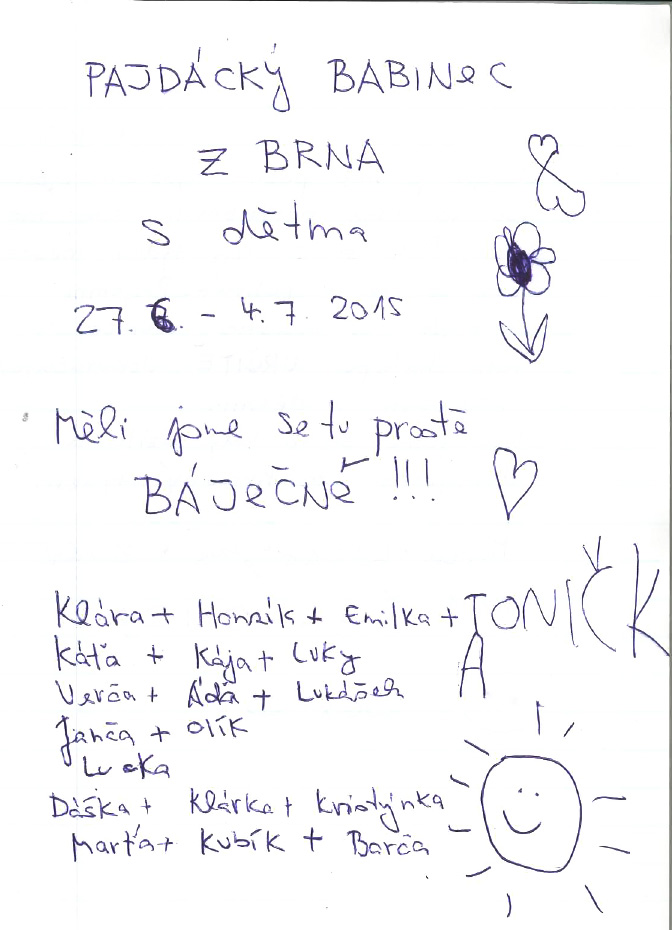 PAJDÁCKÝ BABINeC
Z BRNA
S dětma
27. 6. - 4. 7. 2015
Měli jsme se tu prostě
BÁJeČNě !!!
Klára + Honzík + Emilka + TONIČK
A
Káťa + Kája + Luky
Verča + Áďa + Lukášek
Janča + Olík
Lucka
Dáška + Klárka + Kristýnka
Marťa + Kubík + Barča